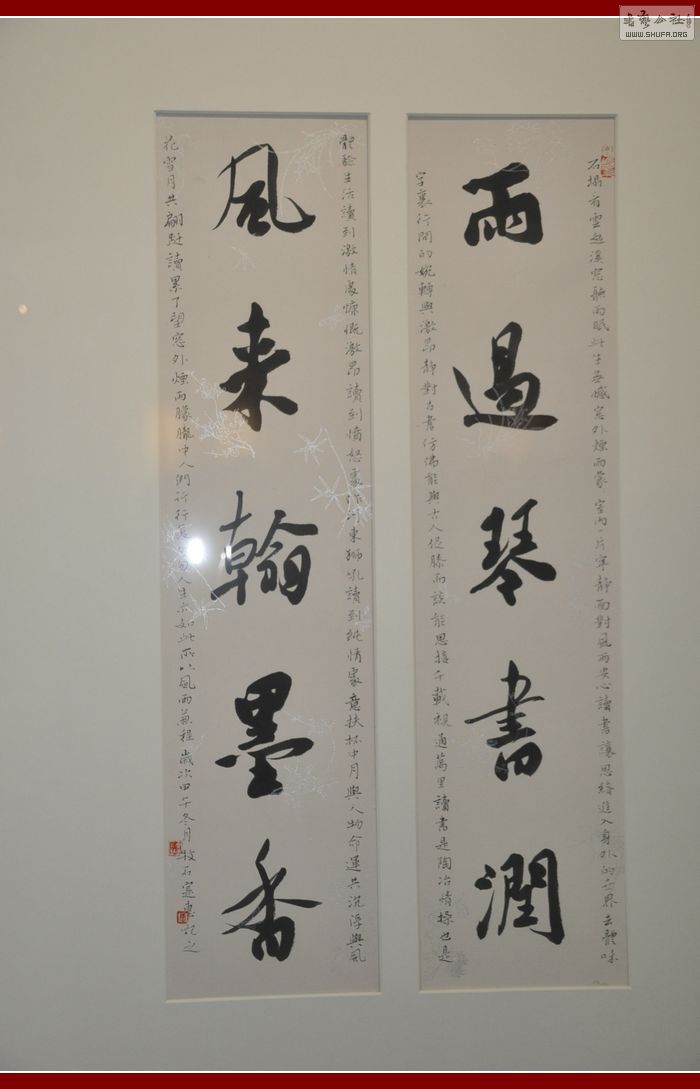 書藝公社
WWW.SHUFA.ORG
雨過琴書潤
石榻看雲起溪窓聽雨眠此生無憾窓外煙雨蒙室内一片寧静面對風雨安心讀書讓思緒進入身外的世界去體味
字裏行間的婉轉與激昂静對古書仿佛能與古人促膝而談能思接千載視通萬里讀書是陶冶情操也是
風来翰墨香
體驗生活讀到激情處慷慨激昂讀到憤怒處作河東獅吼讀到純情處意扶杯中月與人物命運共沉浮與風
花雪月共翩跹讀累了望窓外煙雨朦朧中人們行行人生亦如此所以風雨兼程歲次甲午冬月牧石記之